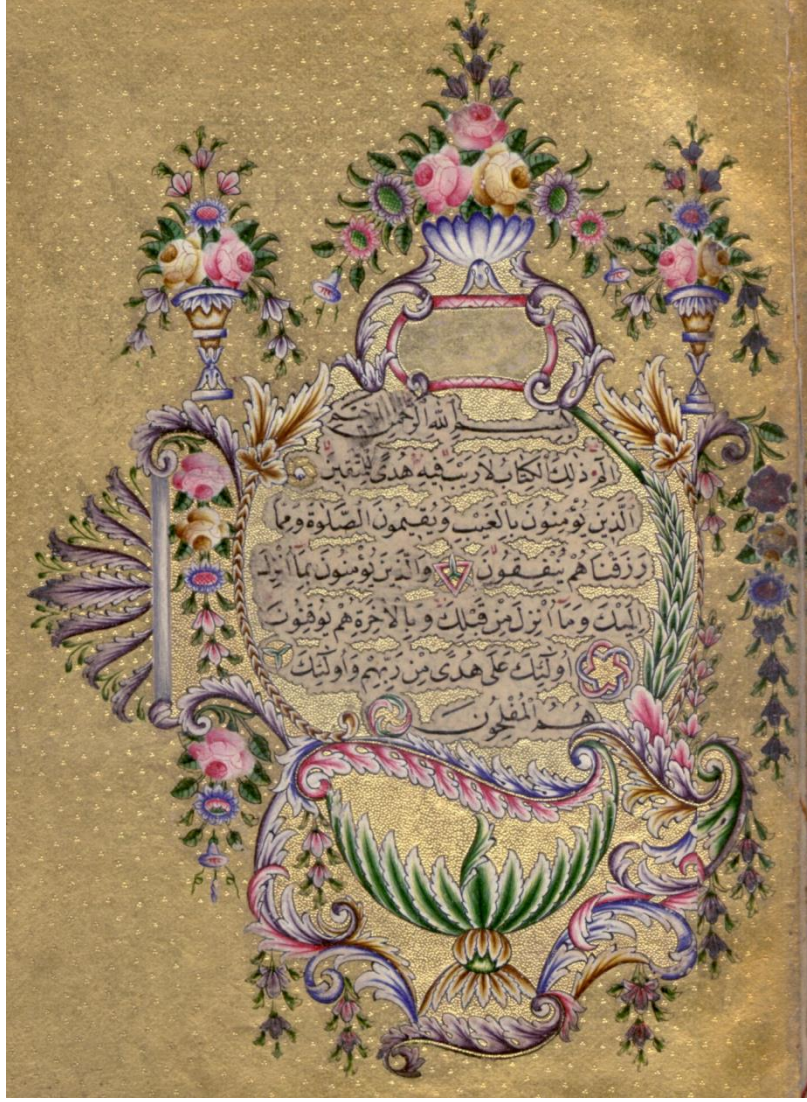 بسم الله الرحمن الرحيم
الم ذلك الكتاب لا ريب فيه هدى للمتقين
الذين يؤمنون بالغيب ويقيمون الصلوة ومما
رزقناهم ينفقون والذين يؤمنون بما انزل
اليك وما انزل من قبلك وبالاخرة هم يوقنون
اولئك على هدى من ربهم واولئك
هم المفلحون